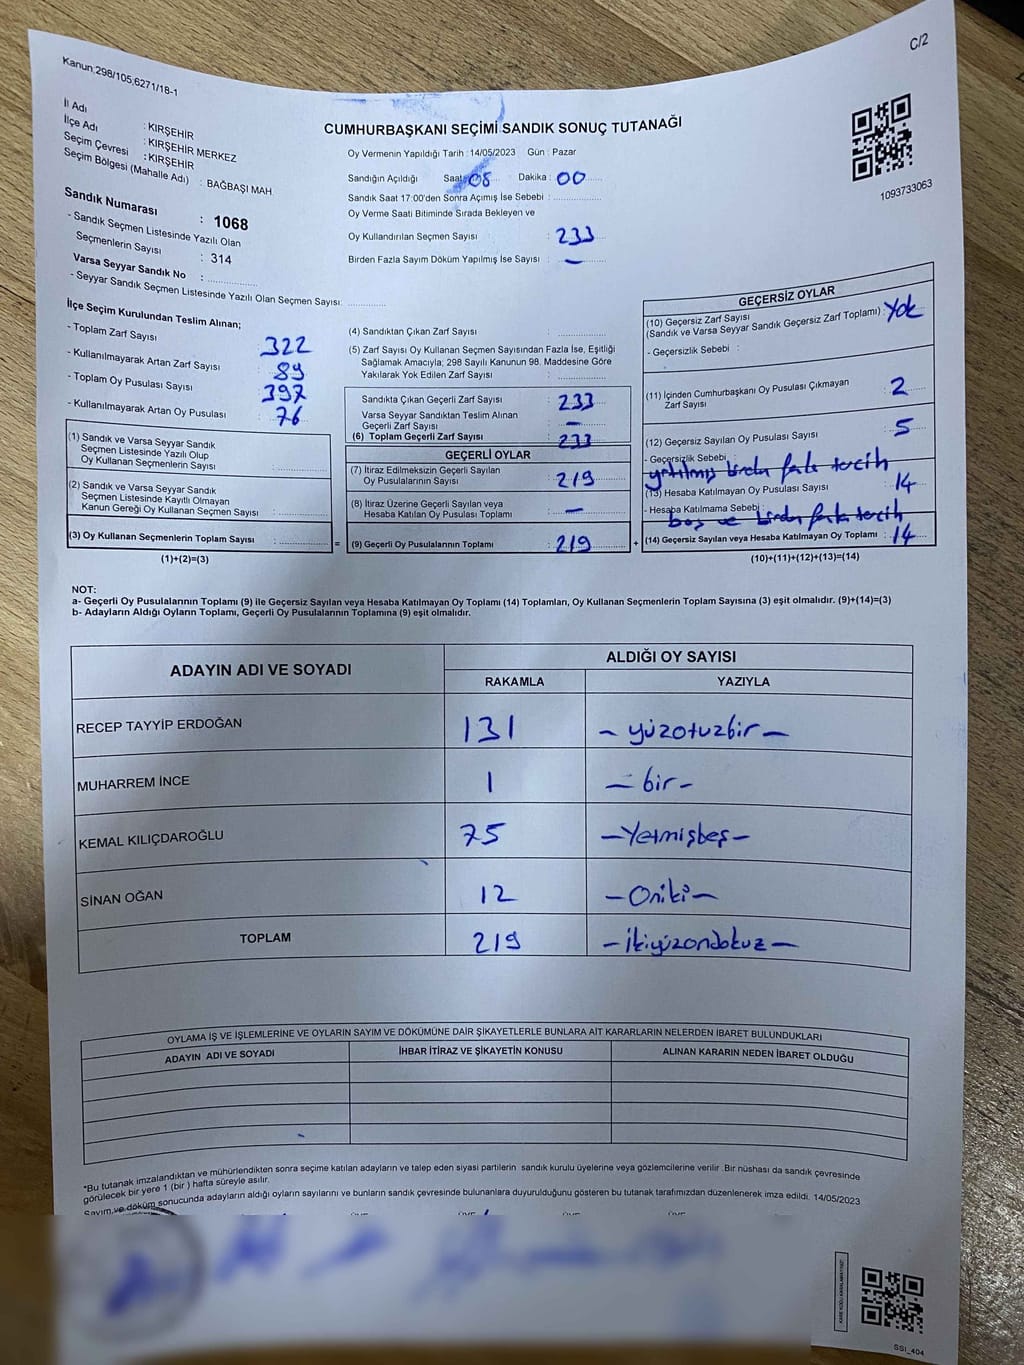 C/2
Kanun;298/105,6271/18-1
İl Adı : KIRŞEHİR
İlçe Adı : KIRŞEHİR MERKEZ
Seçim Çevresi : KIRŞEHİR
Seçim Bölgesi (Mahalle Adı) : BAĞBAŞI MAH.
Sandık Numarası : 1068
- Sandık Seçmen Listesinde Yazılı Olan
Seçmenlerin Sayısı : 314
Varsa Seyyar Sandık No :
- Seyyar Sandık Seçmen Listesinde Yazılı Olan Seçmen Sayısı:
CUMHURBAŞKANI SEÇİMİ SANDIK SONUÇ TUTANAĞI
Oy Vermenin Yapıldığı Tarih :14/05/2023 Gün : Pazar
Sandığın Açıldığı Saat: 08 Dakika : 00
Sandık Saat 17:00'den Sonra Açımış İse Sebebi :
Oy Verme Saati Bitiminde Sırada Bekleyen ve
Oy Kullandırılan Seçmen Sayısı : 233
Birden Fazla Sayım Döküm Yapılmış İse Sayısı : —
1093733063
İlçe Seçim Kurulundan Teslim Alınan;
- Toplam Zarf Sayısı : 322
- Kullanılmayarak Artan Zarf Sayısı : 89
- Toplam Oy Pusulası Sayısı : 397
- Kullanılmayarak Artan Oy Pusulası : 76
(1) Sandık ve Varsa Seyyar Sandık
Seçmen Listesinde Yazılı Olup
Oy Kullanan Seçmenlerin Sayısı :
(2) Sandık ve Varsa Seyyar Sandık
Seçmen Listesinde Kayıtlı Olmayan
Kanun Gereği Oy Kullanan Seçmen Sayısı :
(3) Oy Kullanan Seçmenlerin Toplam Sayısı : =
(1)+(2)=(3)
(4) Sandıktan Çıkan Zarf Sayısı :
(5) Zarf Sayısı Oy Kullanan Seçmen Sayısından Fazla İse, Eşitliği
Sağlamak Amacıyla; 298 Sayılı Kanunun 98. Maddesine Göre
Yakılarak Yok Edilen Zarf Sayısı :
Sandıkta Çıkan Geçerli Zarf Sayısı : 233
Varsa Seyyar Sandıktan Teslim Alınan
Geçerli Zarf Sayısı : —
(6) Toplam Geçerli Zarf Sayısı : 233
GEÇERLİ OYLAR
(7) İtiraz Edilmeksizin Geçerli Sayılan
Oy Pusulalarının Sayısı : 219
(8) İtiraz Üzerine Geçerli Sayılan veya
Hesaba Katılan Oy Pusulası Toplamı : —
(9) Geçerli Oy Pusulalarının Toplamı : 219 +
GEÇERSİZ OYLAR
(10) Geçersiz Zarf Sayısı
(Sandık ve Varsa Seyyar Sandık Geçersiz Zarf Toplamı) : Yok
- Geçersizlik Sebebi :
(11) İçinden Cumhurbaşkanı Oy Pusulası Çıkmayan
Zarf Sayısı : 2
(12) Geçersiz Sayılan Oy Pusulası Sayısı : 5
- Geçersizlik Sebebi
yırtılmış birden fazla tercih
(13) Hesaba Katılmayan Oy Pusulası Sayısı : 14
- Hesaba Katılmama Sebebi :
boş ve birden fazla tercih
(14) Geçersiz Sayılan veya Hesaba Katılmayan Oy Toplamı : 14
(10)+(11)+(12)+(13)=(14)
NOT:
a- Geçerli Oy Pusulalarının Toplamı (9) ile Geçersiz Sayılan veya Hesaba Katılmayan Oy Toplamı (14) Toplamları, Oy Kullanan Seçmenlerin Toplam Sayısına (3) eşit olmalıdır. (9)+(14)=(3)
b- Adayların Aldığı Oyların Toplamı, Geçerli Oy Pusulalarının Toplamına (9) eşit olmalıdır.
ADAYIN ADI VE SOYADI
ALDIĞI OY SAYISI
RAKAMLA YAZIYLA
RECEP TAYYİP ERDOĞAN 131 – yüzotuzbir –
MUHARREM İNCE 1 – bir –
KEMAL KILIÇDAROĞLU 75 – Yetmişbeş –
SİNAN OĞAN 12 – Oniki –
TOPLAM 219 – İkiyüzondokuz –
OYLAMA İŞ VE İŞLEMLERİNE VE OYLARIN SAYIM VE DÖKÜMÜNE DAİR ŞİKAYETLERLE BUNLARA AİT KARARLARIN NELERDEN İBARET BULUNDUKLARI
ADAYIN ADI VE SOYADI İHBAR İTİRAZ VE ŞİKAYETİN KONUSU ALINAN KARARIN NEDEN İBARET OLDUĞU
*Bu tutanak imzalandıktan ve mühürlendikten sonra seçime katılan adayların ve talep eden siyasi partilerin sandık kurulu üyelerine veya gözlemcilerine verilir .Bir nüshası da sandık çevresinde
görülecek bir yere 1 (bir ) hafta süreyle asılır.
Sayım,ve döküm sonucunda adayların aldığı oyların sayılarını ve bunların sandık çevresinde bulunanlara duyurulduğunu gösteren bu tutanak tarafımızdan düzenlenerek imza edildi. 14/05/2023
SSI_404